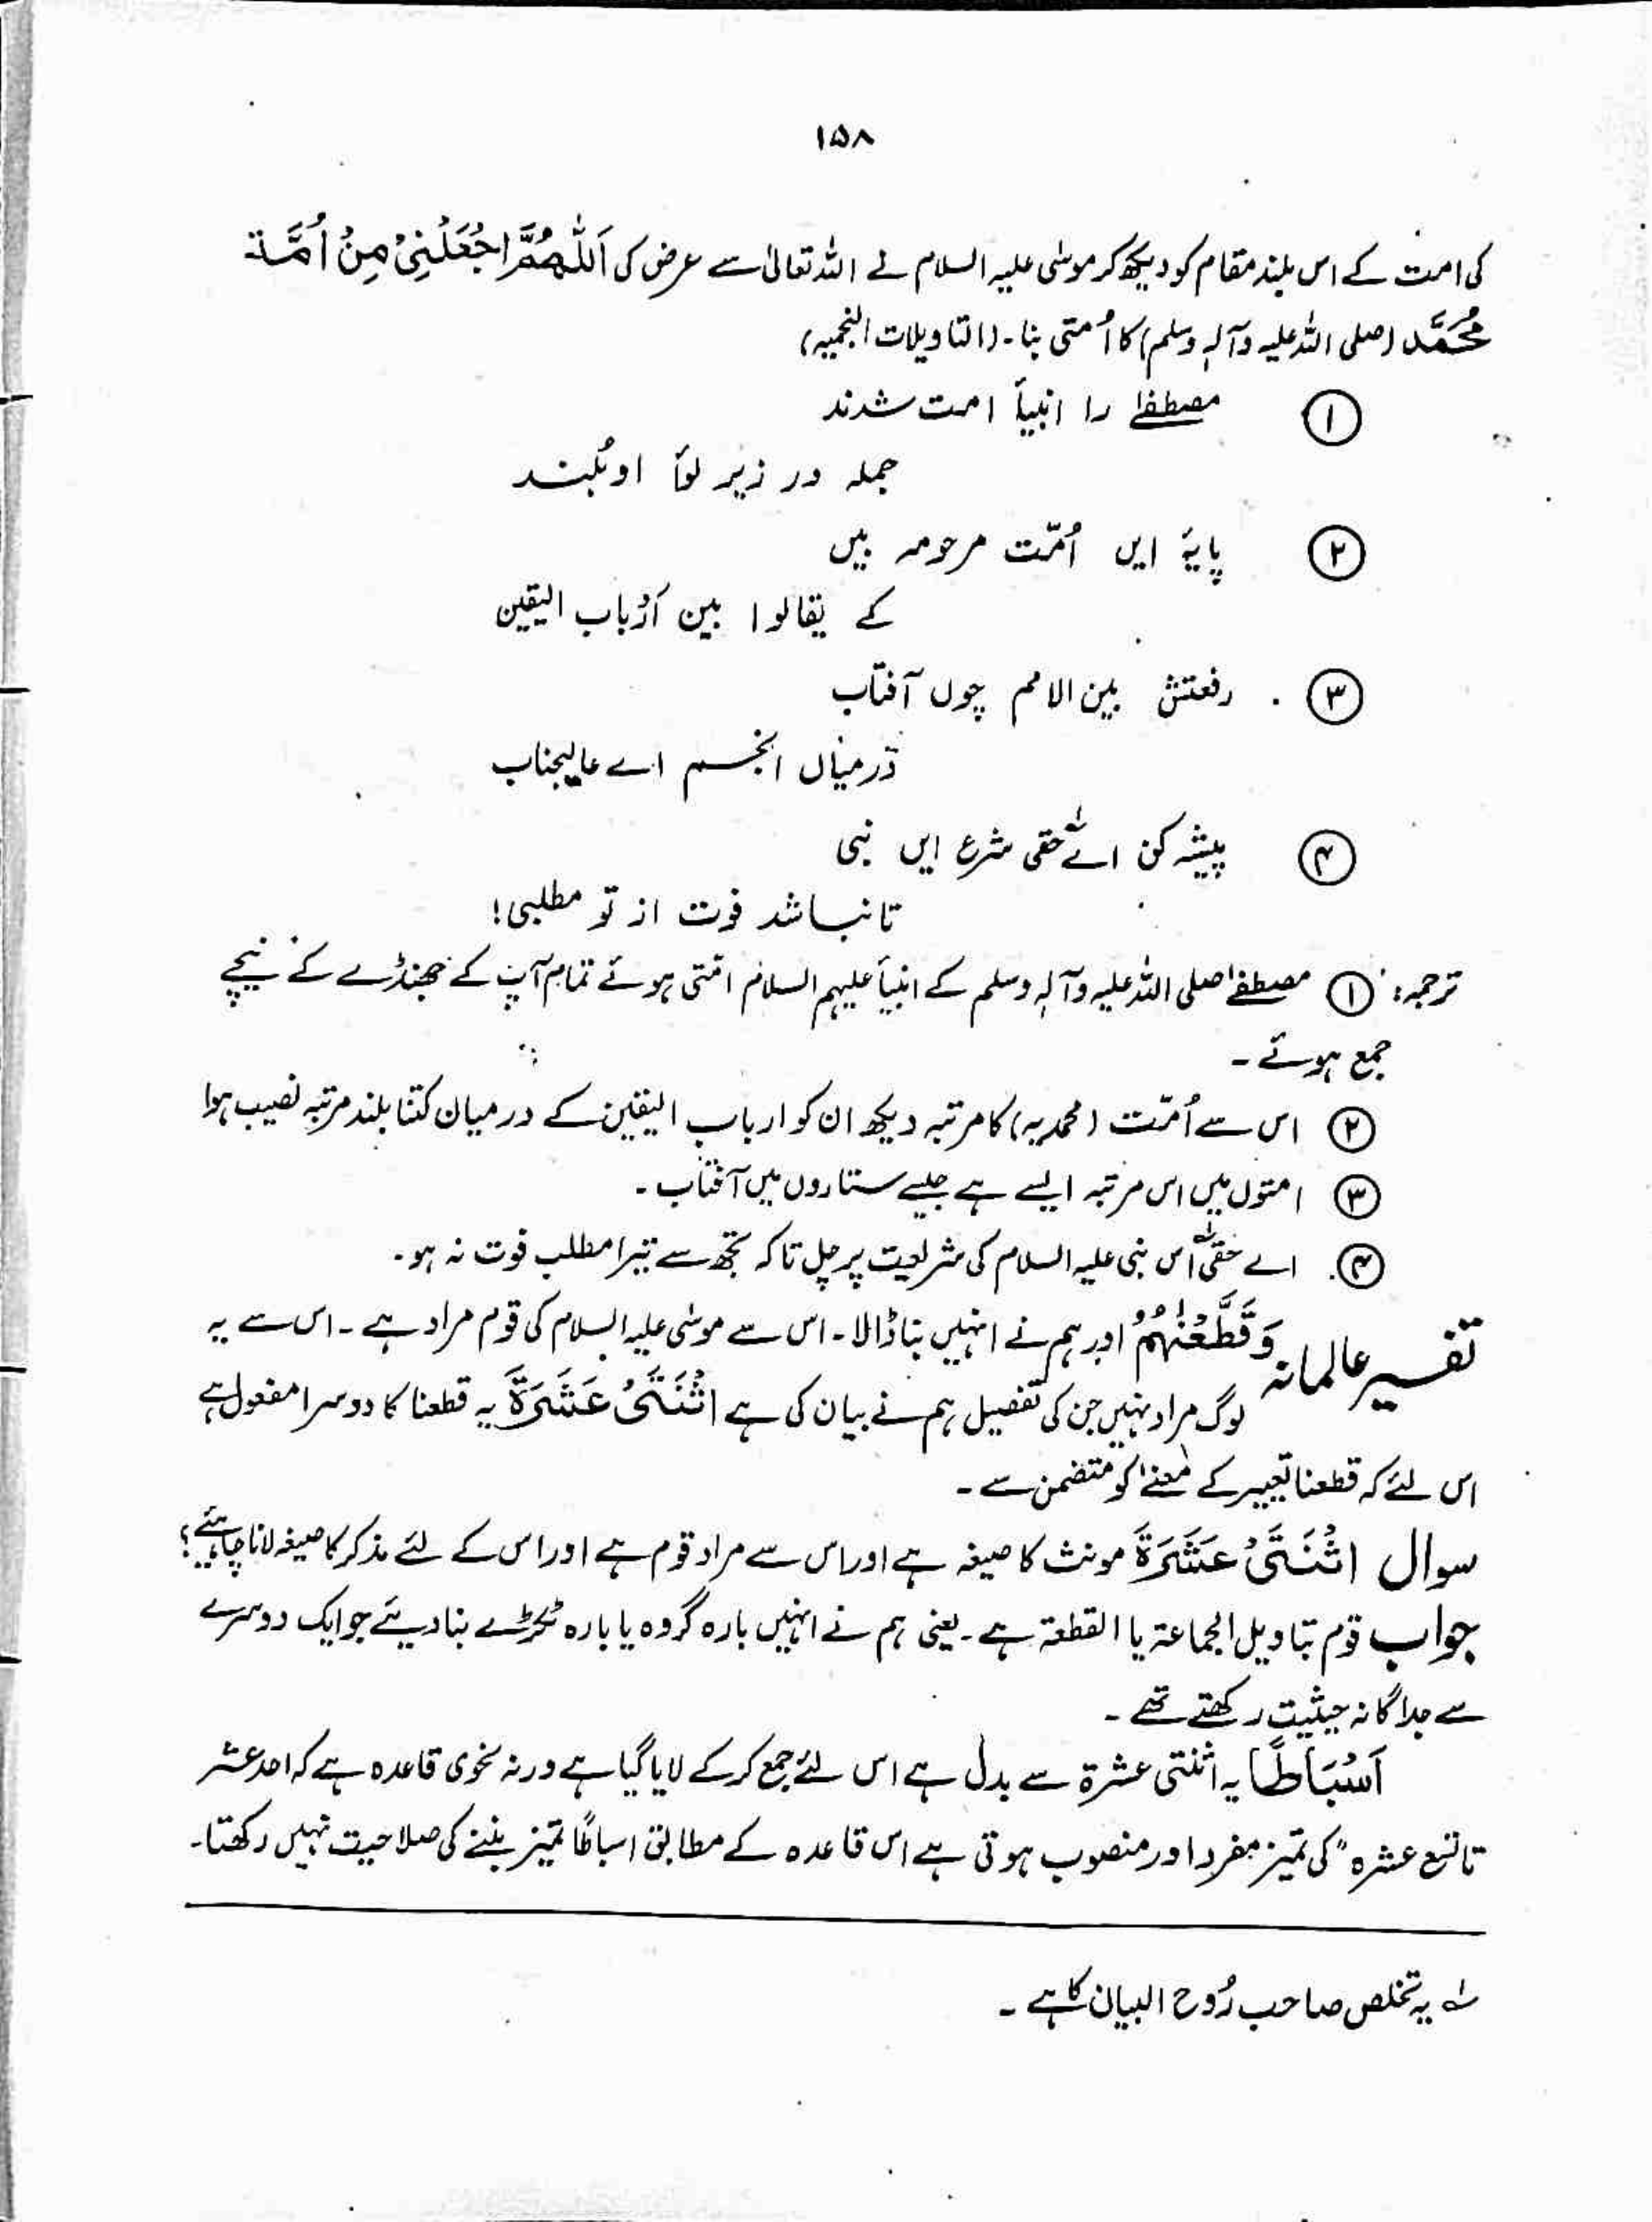 ۱۵۸
کی امت کے اس بلند مقام کو دیکھ کر موسٰی علیہ السلام نے اللہ تعالیٰ سے عرض کی اَللّٰھُمَّ اجْعَلْنِیْ مِنْ اُمَّۃ
مُحَمَّد (صلی اللہ علیہ وآلہٖ وسلم) کا اُمتی بنا۔ (التاویلات النجمیہ)
① مصطفےٰ را انبیأ امت شدند
جملہ در زیر لوأ او
② پایۂ ایں اُمّت مرحومہ بیں
کے یقالوا بین اَرْباب الیقین
③ رفعتش بین الامم چوں آفتاب
درمیاں انجسم اے عالیجناب
④ پیشہ کن اے حقی شرع ایں نبی
تا نباشد فوت از تو مطلبی!
ترجمہ: ① مصطفےٰ صلی اللہ علیہ وآلہٖ وسلم کے انبیأ علیہم السلام امتی ہوئے تمام آپ کے جھنڈے کے نیچے
جمع ہوئے۔
② اس سے اُمّت (محمدیہ) کا مرتبہ دیکھ ان کو ارباب الیقین کے درمیان کتنا بلند مرتبہ نصیب ہوا
③ امتوں میں اس مرتبہ ایسے ہے جیسے ستاروں میں آفتاب۔
④ اے حقیؔ اس نبی علیہ السلام کی شریعت پر چل تاکہ تجھ سے تیرا مطلب فوت نہ ہو۔
تفسیر عالمانہ وَقَطَّعْنٰھُمُ اور ہم نے انہیں بنا ڈالا۔ اس سے موسٰی علیہ السلام کی قوم مراد ہے۔ اس سے یہ
لوگ مراد نہیں جن کی تفصیل ہم نے بیان کی ہے اثْنَتَیْ عَشَرَۃَ یہ قطعنا کا دوسرا مفعول ہے
اس لئے کہ قطعنا کے معنےٰ کو متضمن سے۔
سوال اثْنَتَیْ عَشَرَۃَ مونث کا صیغہ ہے اور اس سے مراد قوم ہے اور اس کے لئے مذکر کا صیغہ لانا چاہیئے؟
جواب قوم بتاویل الجماعۃ یا القطعۃ ہے۔ یعنی ہم نے انہیں بارہ گروہ یا بارہ ٹکڑے بنا دیئے جو ایک دوسرے
سے جداگانہ حیثیت رکھتے تھے۔
اَسْبَاطًا یہ اثنتی عشرۃ سے بدل ہے اس لئے جمع کرکے لایا گیا ہے ورنہ نحوی قاعدہ ہے کہ احد عشر
تا تسع عشرہ" کی تمیز مفرد اور منصوب ہوتی ہے اس قاعدہ کے مطابق اسباطًا تمیز بننے کی صلاحیت نہیں رکھتا۔
لہ یہ تخلص صاحب رُوح البیان کا ہے۔